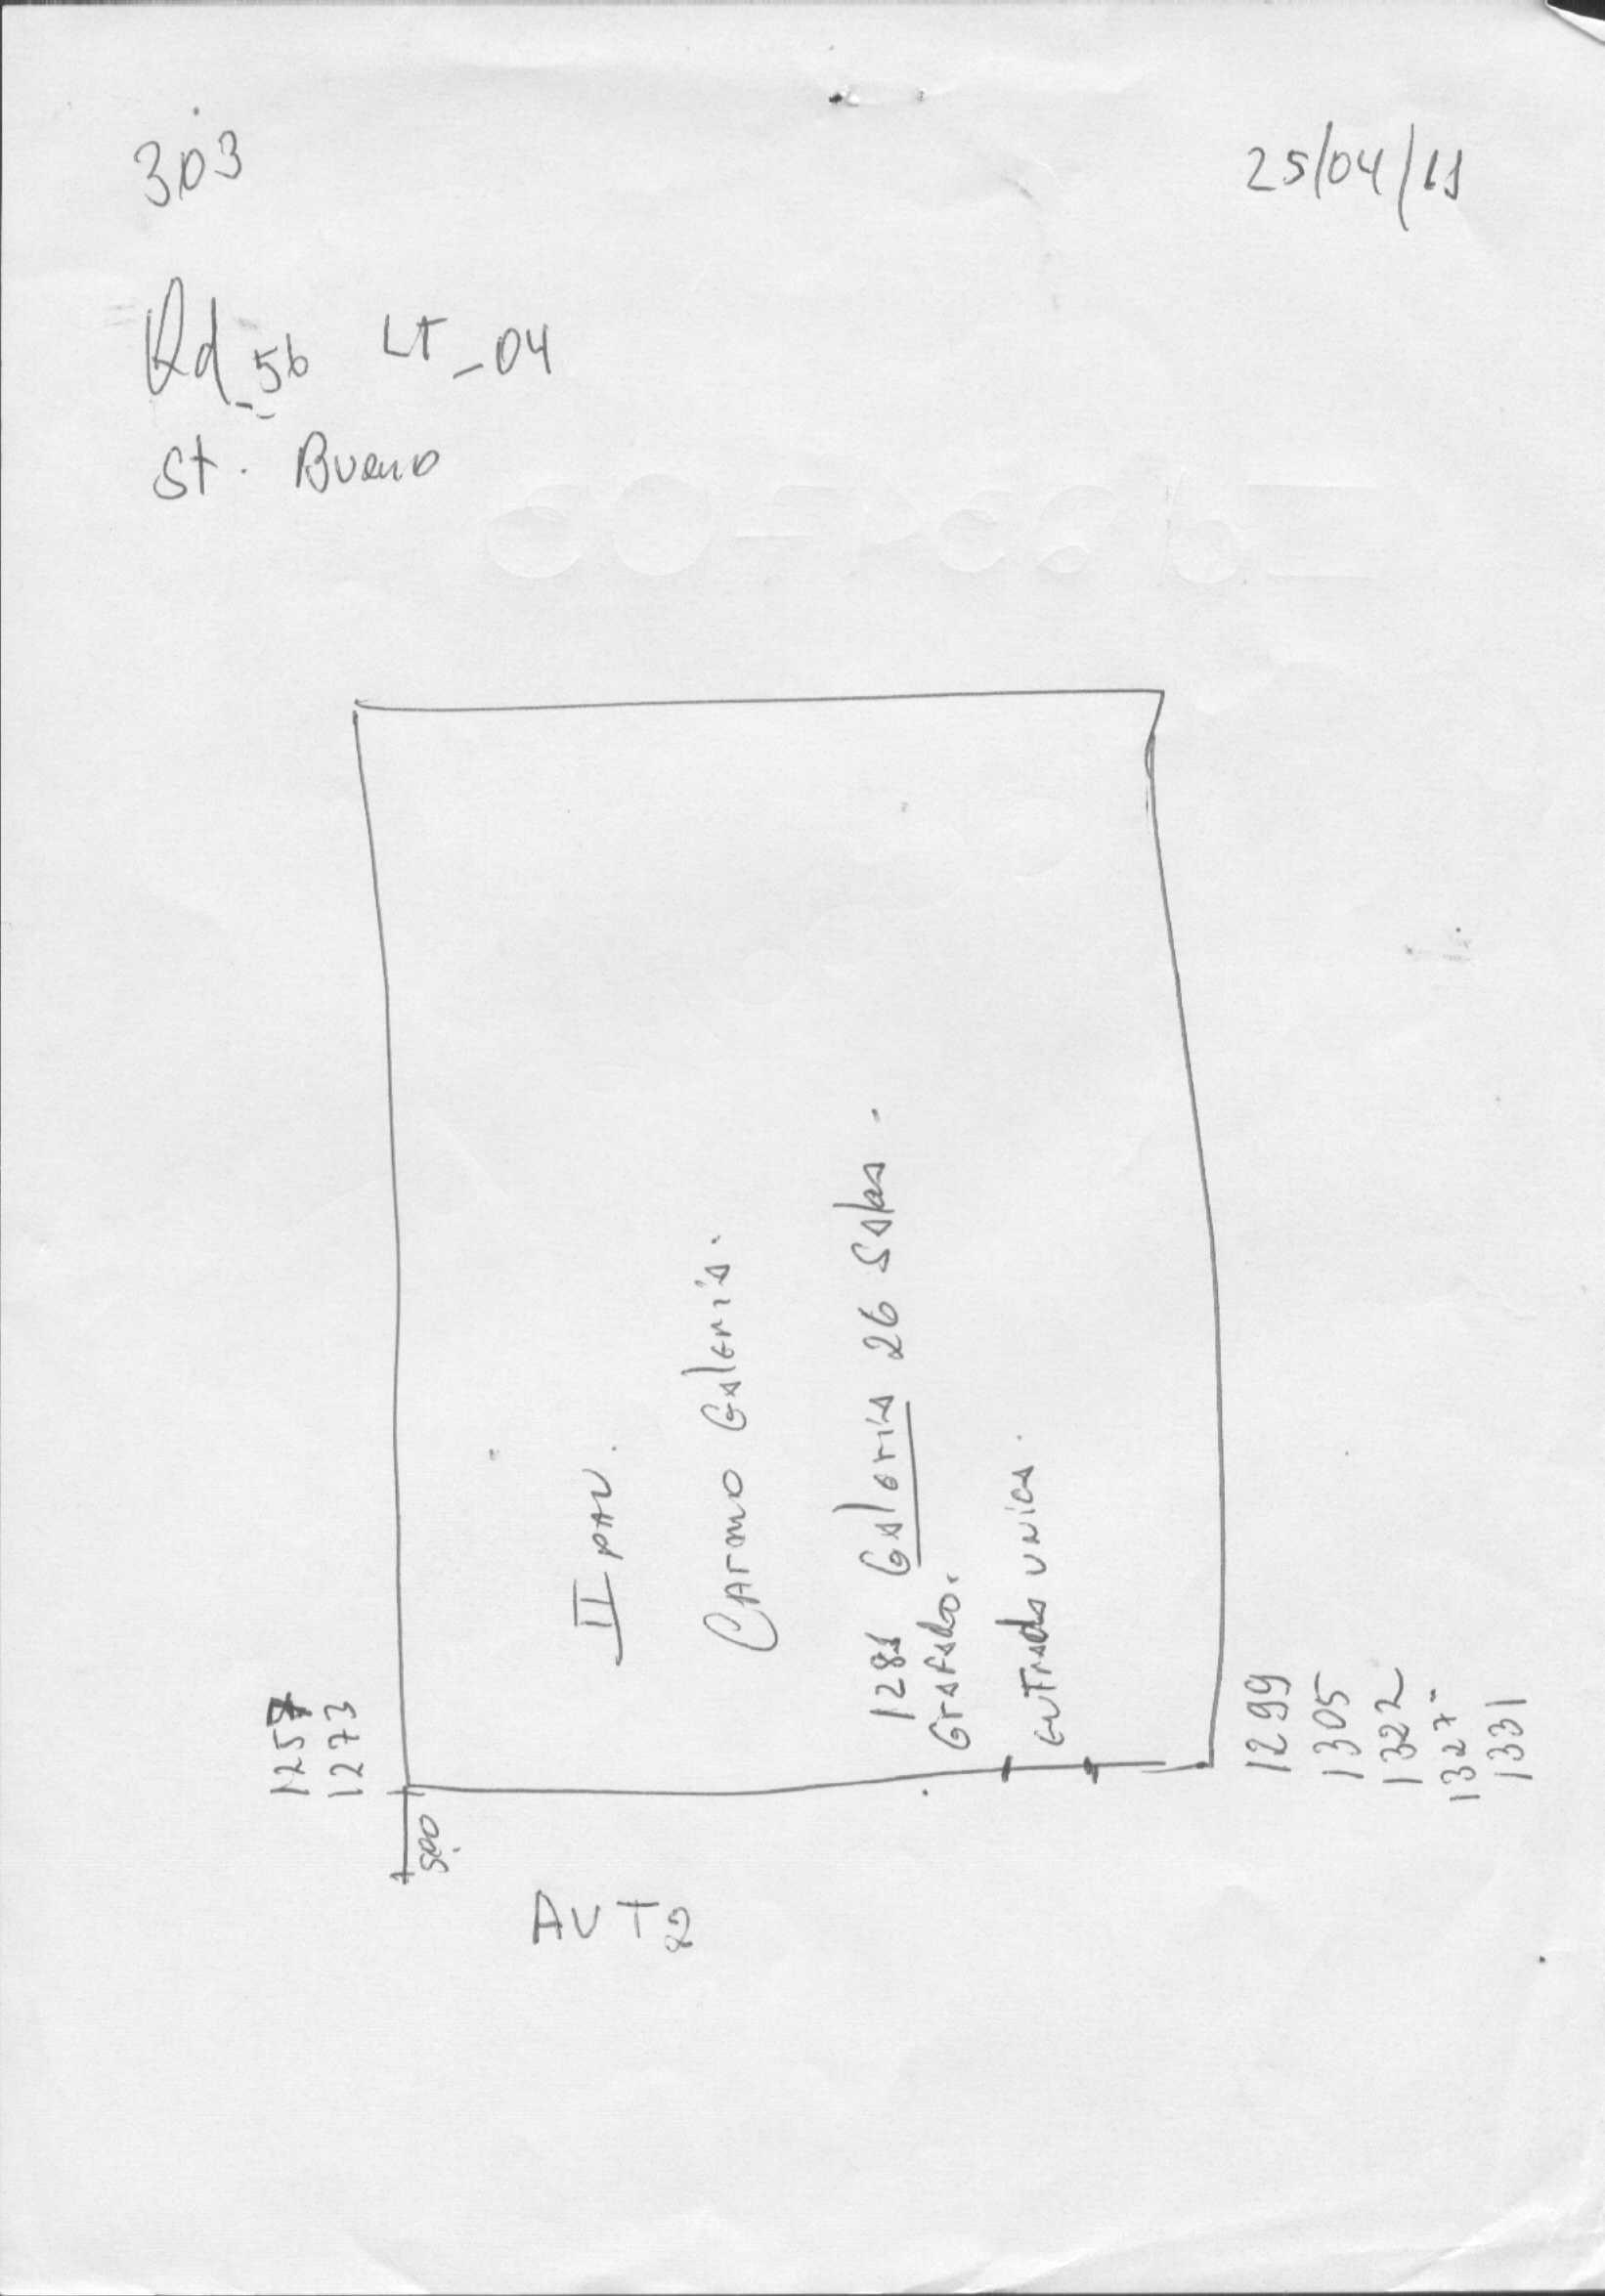 303
25/04/11
Qd_56 LT_04
St. Bueno
II PAV.
CArmo Galeria.
1281 Galeria 26 Salas.
Grafado.
entrada unica.
1257
1273
1299
1305
1322
1327
1331
500
AV T2